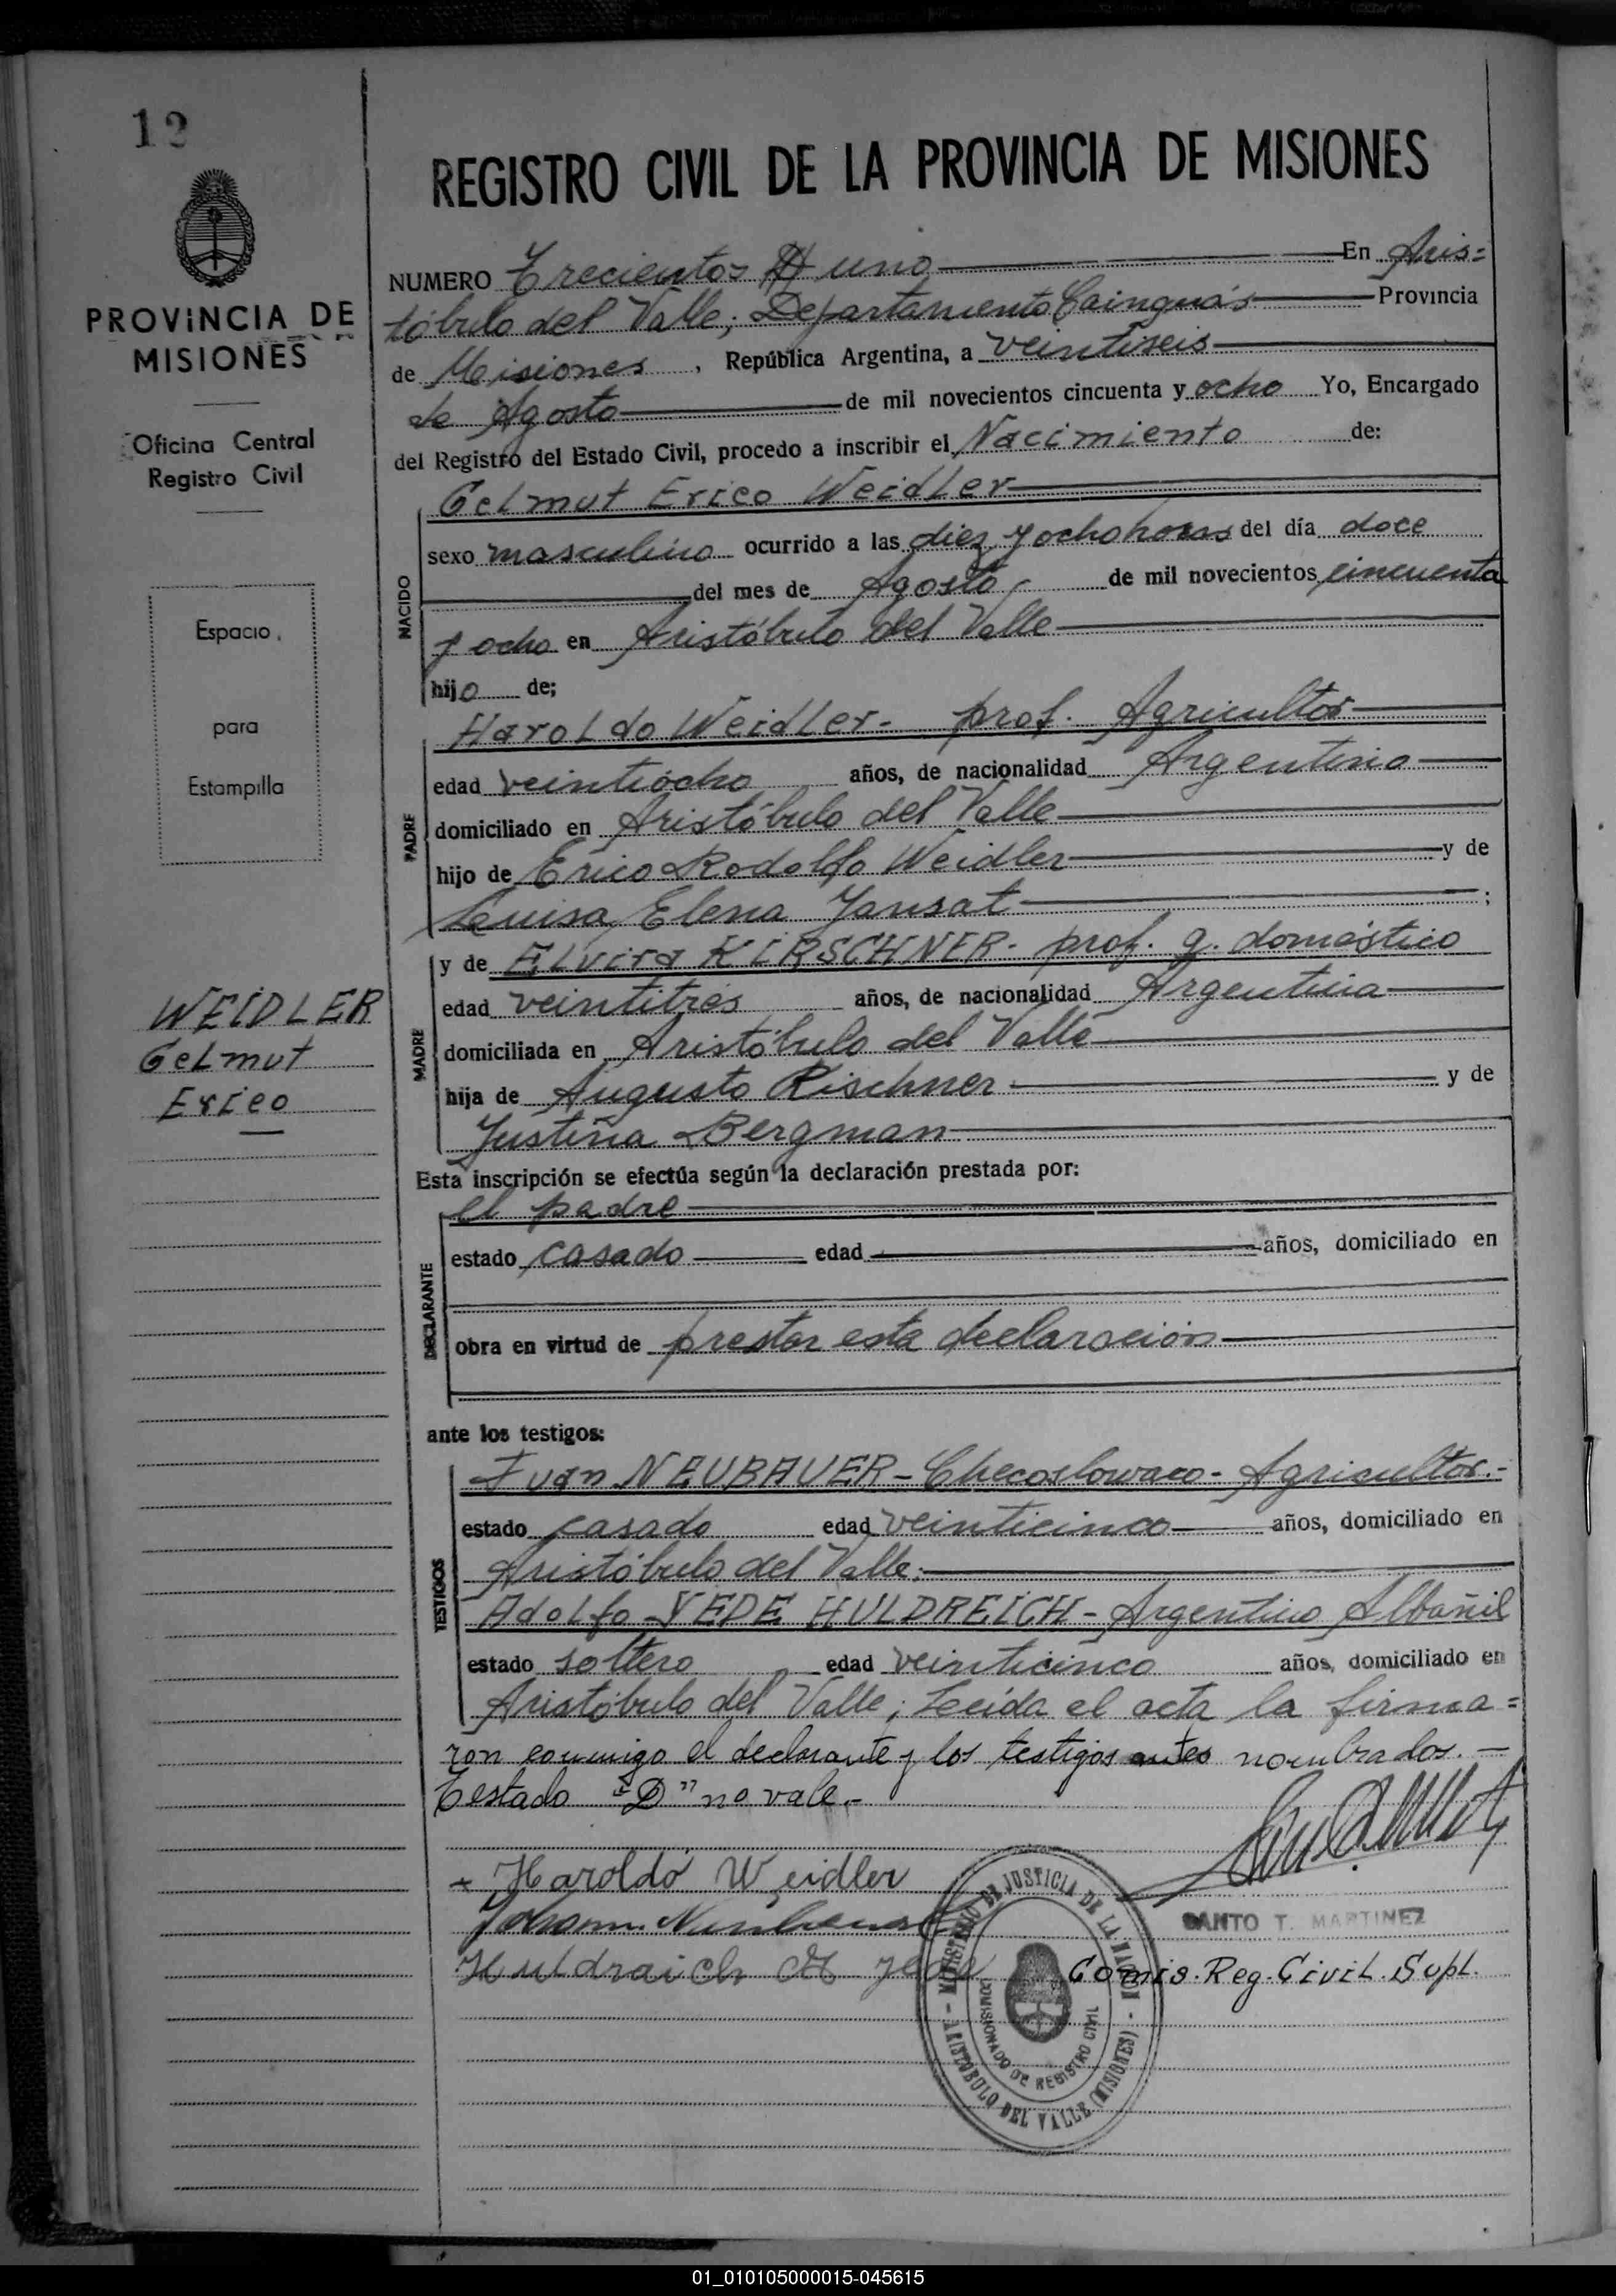 12
REGISTRO CIVIL DE LA PROVINCIA DE MISIONES
PROVINCIA DE
MISIONES
Oficina Central
Registro Civil
Espacio
para
Estampilla
WEIDLER
Gelmut
Erico
NUMERO Trecientos uno En Aris=
tóbulo del Valle; Departamento Cainguás Provincia
de Misiones, República Argentina, a veintiseis
de Agosto de mil novecientos cincuenta y ocho Yo, Encargado
del Registro del Estado Civil, procedo a inscribir el Nacimiento de:
NACIDO
Gelmut Erico Weidler
sexo masculino ocurrido a las diez y ocho horas del día doce
del mes de Agosto de mil novecientos cincuenta
y ocho en Aristóbulo del Valle
hijo de;
PADRE
Haroldo Weidler- prof. Agricultor
edad veintiocho años, de nacionalidad Argentina
domiciliado en Aristóbulo del Valle
hijo de Erico Rodolfo Weidler y de
Luisa Elena Jansat;
MADRE
y de Elvira KIRSCHNER- prof. q. doméstico
edad veintitrés años, de nacionalidad Argentina
domiciliada en Aristóbulo del Valle
hija de Augusto Rischner y de
Justina Bergman
Esta inscripción se efectúa según la declaración prestada por:
DECLARANTE
el padre
estado casado edad años, domiciliado en
obra en virtud de prestar esta declaración
ante los testigos:
TESTIGOS
Juan NEUBAUER - Checoslowaco - Agricultor.-
estado casado edad veinticinco años, domiciliado en
Aristóbulo del Valle;
Adolfo YEDE HULDREICH - Argentino Albañil
estado soltero edad veinticinco años, domiciliado en
Aristóbulo del Valle; Leída el acta la firma=
ron conmigo el declarante y los testigos antes nombrados.-
Testado "D" no vale.-
Haroldo Weidler
Johann
Huldraich
SANTO T. MARTINEZ
Comis. Reg. Civil. Supl.
MINISTERIO DE JUSTICIA DE LA NACION - ARISTOBULO DEL VALLE (MISIONES) -
COMISIONADO DE REGISTRO CIVIL
01_010105000015-045615